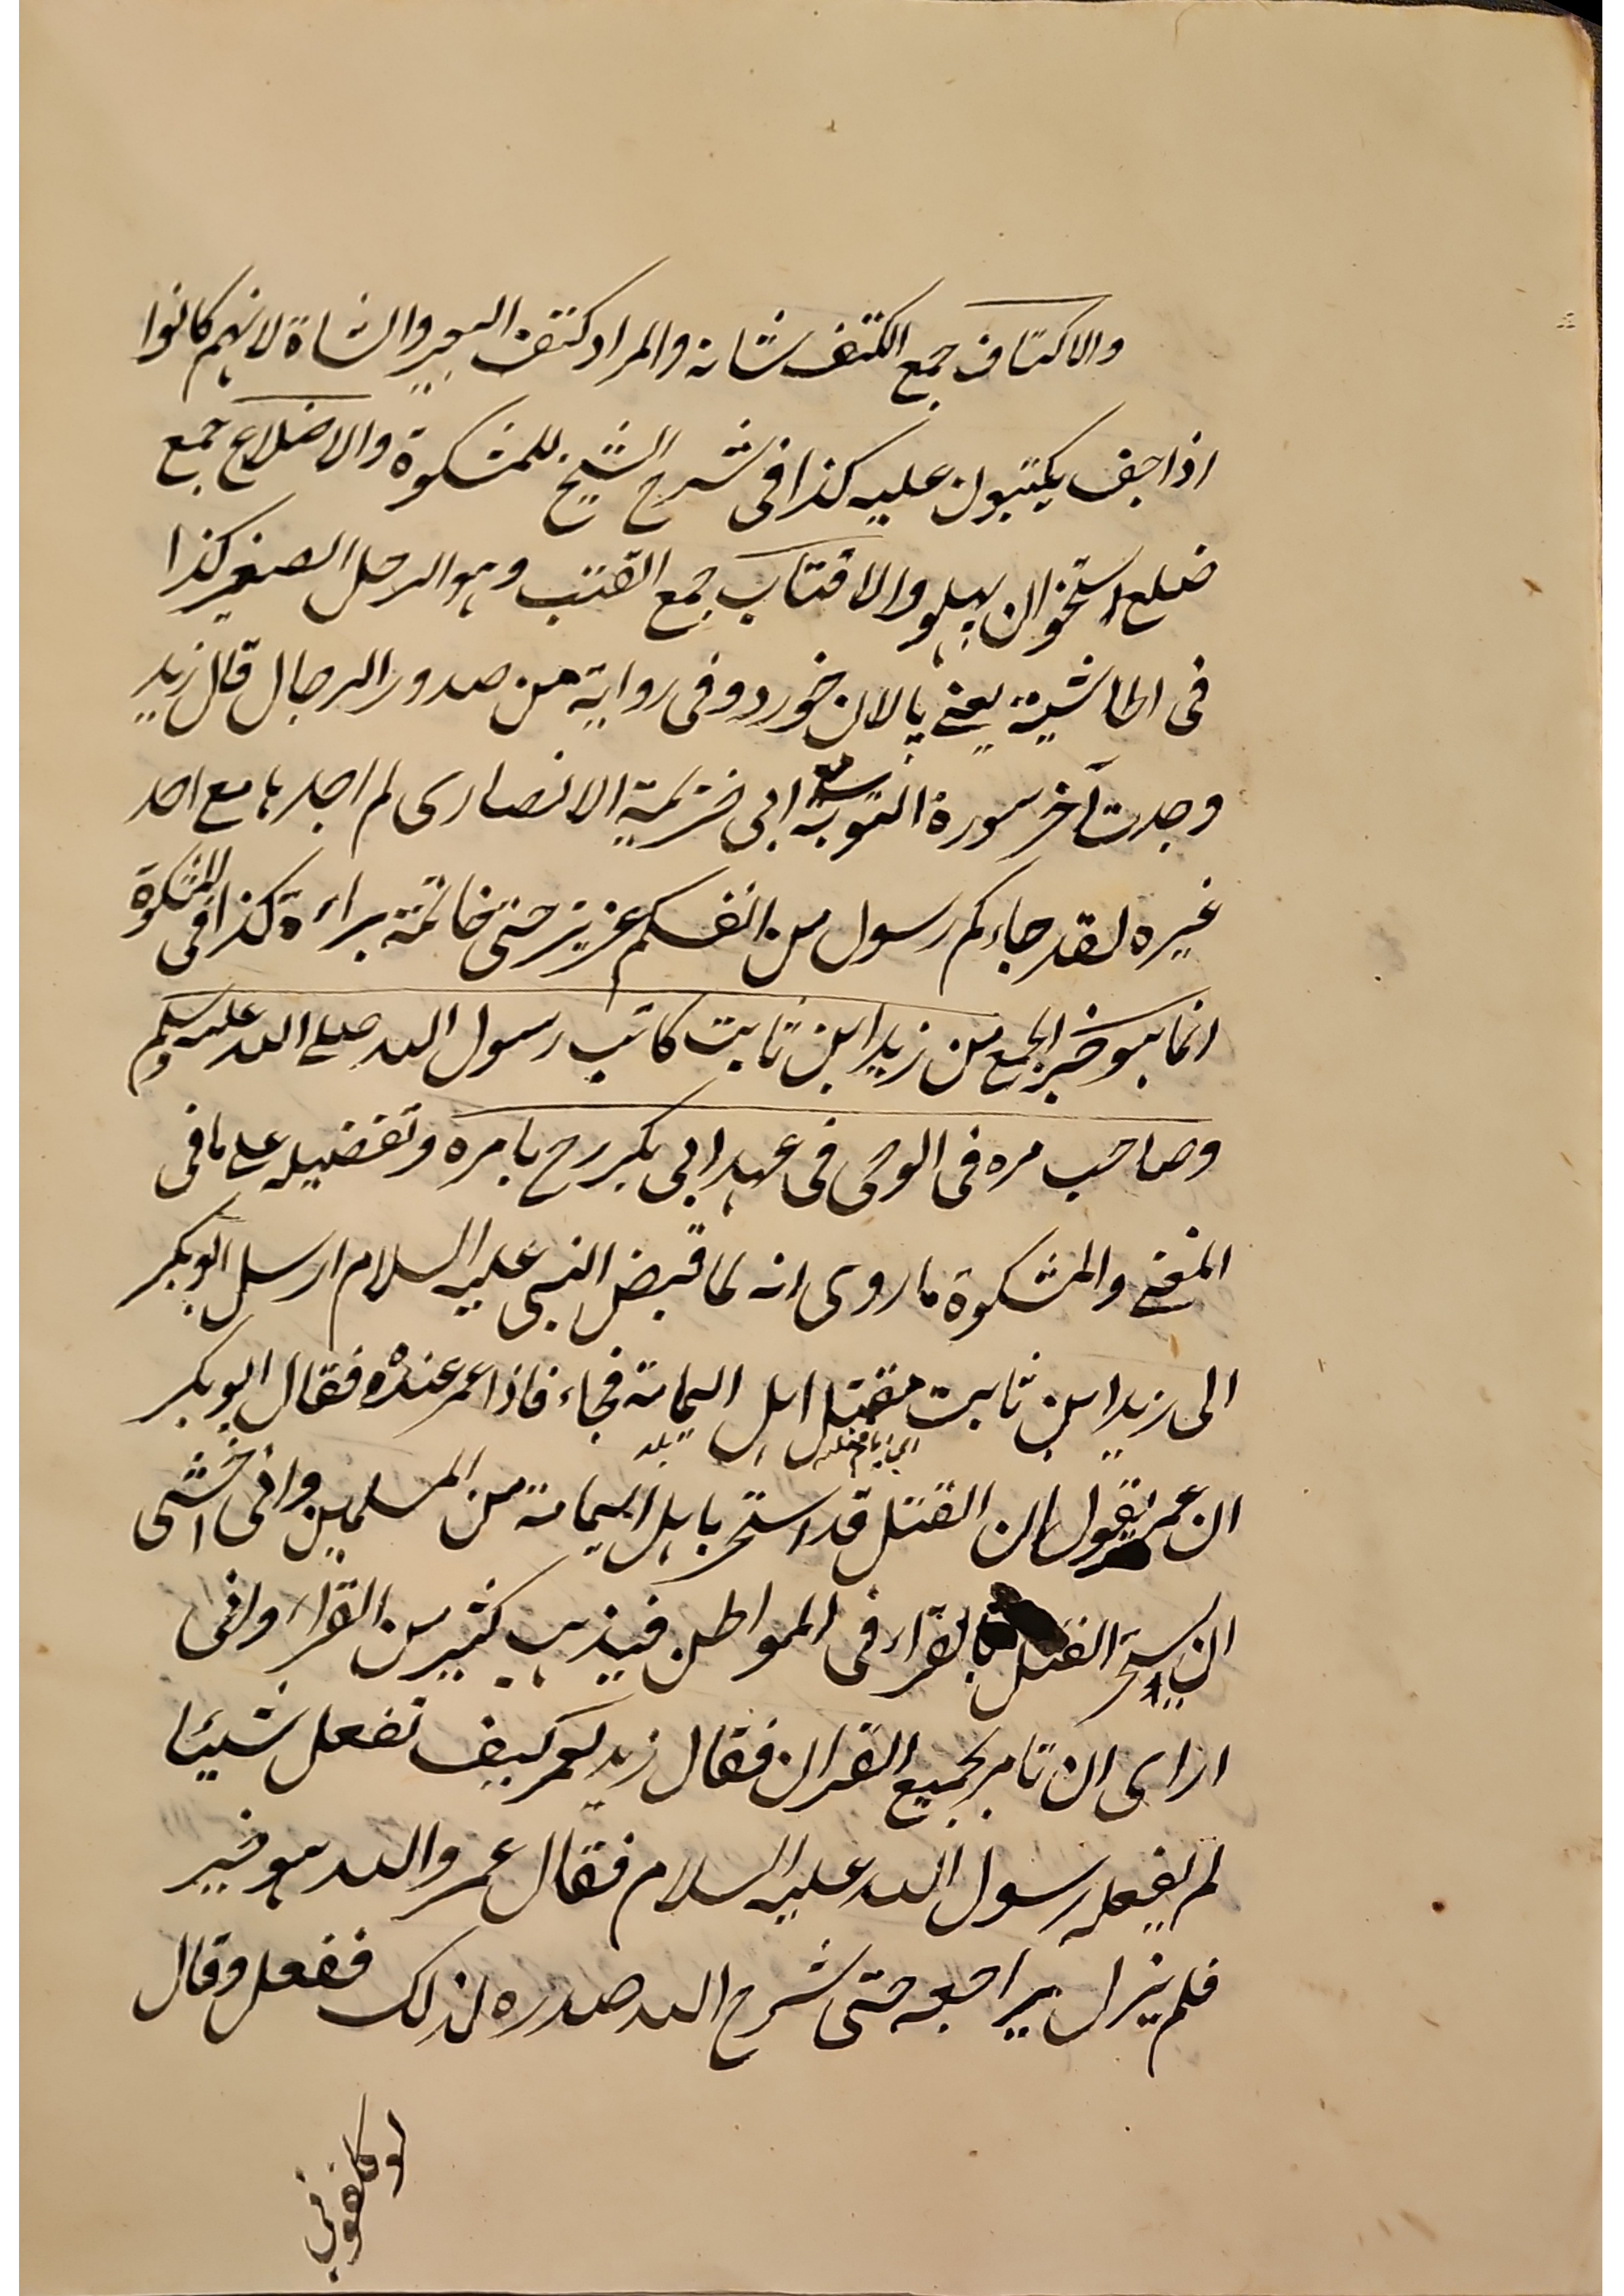 والاكتاف جمع الكتف شانه والمراد كتف البعير والشاة لانهم كانوا
اذا جف يكتبون عليه كذا فى شرح الشيخ للمشكوة والاضلاع جمع
ضلع استخوان پہلو والاقتاب جمع القتب وهو الرحل الصغير كذا
فى الحاشية يعنے پالان خورد وفى رواية من صدور الرجال قال زيد
وجدت آخر سورة التوبة مع ابى خزيمة الانصارى لم اجدها مع احد
غيره لقد جاءكم رسول من انفسكم عزيز حتى خاتمة براءة كذا فى المشكوة
انما هو خبر الجمع من زيد ابن ثابت كاتب رسول الله صلے الله عليه وسلم
وصاحب مره فى الوحى فى عهد ابى بكر رح بامره وتفضيله على ما فى
المغنے والمشكوة ما روى انه لما قبض النبى عليه السلام ارسل ابوبكر
الى زيد ابن ثابت مقتل اهل اليمامة فجاء فاذا عمر عنده فقال ابوبكر
اى زمان قتله بلد
ان عمر يقول ان القتل قد استحر باهل اليمامة من المسلمين وانى اخشى
ان استحر القتل بالقراء فى المواطن فيذهب كثير من القراء وانى
ارى ان تامر بجميع القران فقال زيد لعمر كيف تفعل شيئا
لم يفعله رسول الله عليه السلام فقال عمر والله هو خير
فلم يزل يراجعه حتى شرح الله صدره لذلك ففعل وقال
لو كلفونى